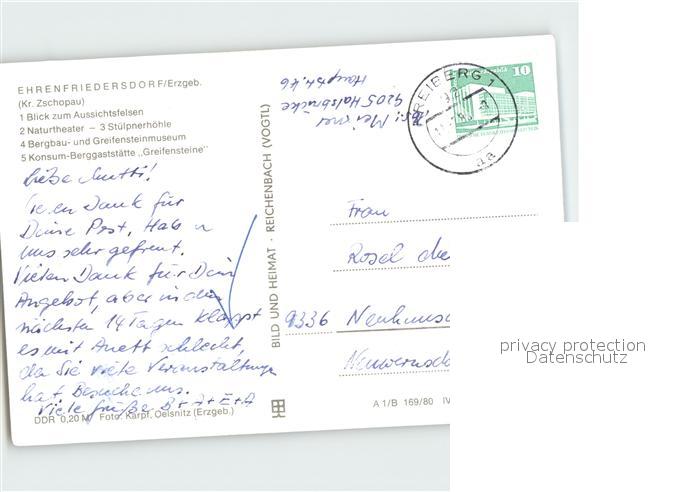 EHRENFRIEDERSDORF/Erzgeb.
(Kr. Zschopau)
1 Blick zum Aussichtsfelsen
2 Naturtheater – 3 Stülpnerhöhle
4 Bergbau- und Greifensteinmuseum
5 Konsum-Berggaststätte „Greifensteine"
Liebe Mutti!
Vielen Dank für
Deine Post, Haben
uns sehr gefreut.
Vielen Dank für Dein
Angebot, aber in den
nächsten 14 Tagen klappt
es mit Anett schlecht,
da sie viele Veranstaltungen
hat. Besuche uns.
Viele Grüße B+J+E+A
DDR 0,20 M Foto: Karpf, Oelsnitz (Erzgeb.)
BILD UND HEIMAT · REICHENBACH (VOGTL)
Abs.: Meixner
9205 Halsbrücke
Hauptstr. 66
FREIBERG 1
92
aa
10
Frau
Rosel
9336 Neuhausen
Neuwernsdo
A 1/B 169/80 IV
privacy protection
Datenschutz